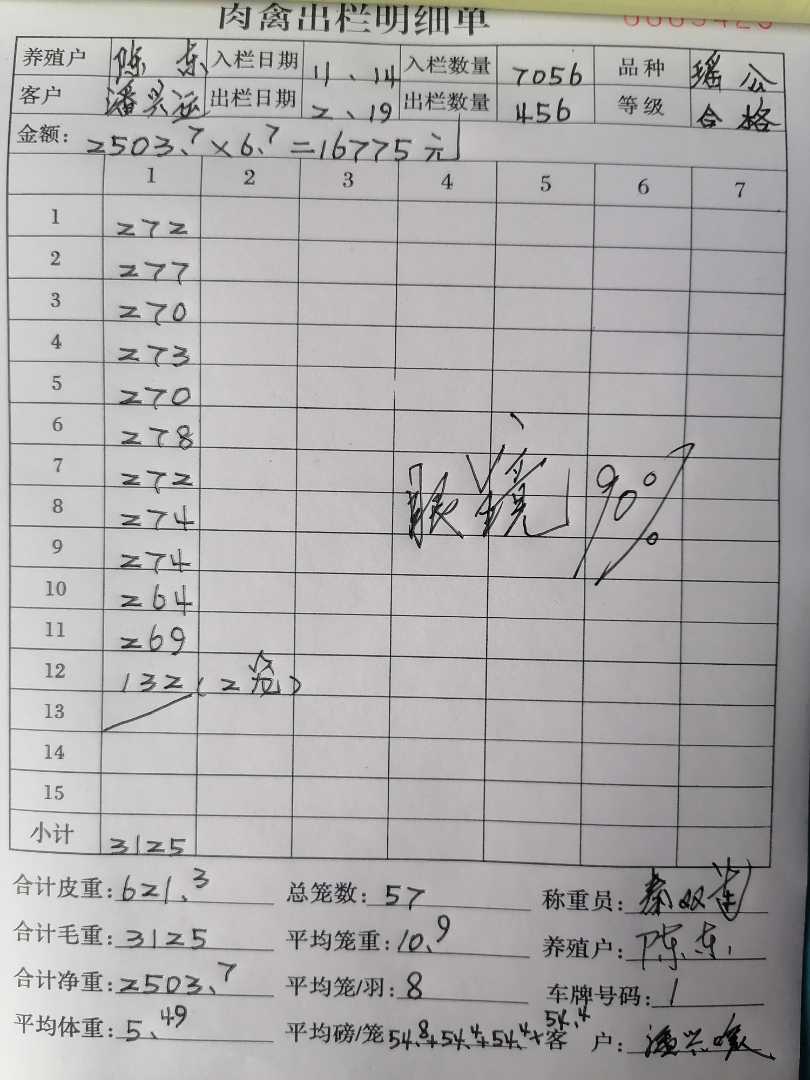 肉禽出栏明细单
养殖户 陈东 入栏日期 11、14 入栏数量 7056 品种 瑶公
客户 潘兴 出栏日期 2、19 出栏数量 456 等级 合格
金额: 2503.7×6.7=16775元
1 2 3 4 5 6 7
1 272
2 277
3 270
4 273
5 270
6 278
7 272
8 274
9 274
10 264
11 269
12 132(2笼)
13
14
15
小计 3125
90%
合计皮重: 621.3 总笼数: 57 称重员: 秦双莲
合计毛重: 3125 平均笼重: 10.9 养殖户: 陈东
合计净重: 2503.7 平均笼/羽: 8 车牌号码: 1
平均体重: 5.49 平均磅/笼 54.8+54.4+54.4+54.4 客户: 潘兴